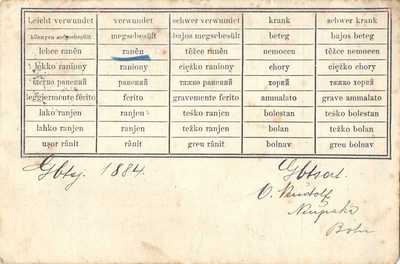 Leicht verwundet verwundet schwer verwundet krank schwer krank
könnyen megsebesült megsebesült bajos megsebesült beteg bajos beteg
lehce raněn raněn těžce raněn nemocen těžce nemocen
lekko raniony raniony ciężko raniony chory ciężko chory
легко ранений ранений тяжко ранений хорий тяжко хорий
leggiermente ferito ferito gravemente ferito ammalato grave ammalato
lako ranjen ranjen teško ranjen bolestan teško bolestan
lahko ranjen ranjen težko ranjen bolan težko bolan
ușor rănit rănit greu rănit bolnav greu bolnav
1884.
O. Rudolf